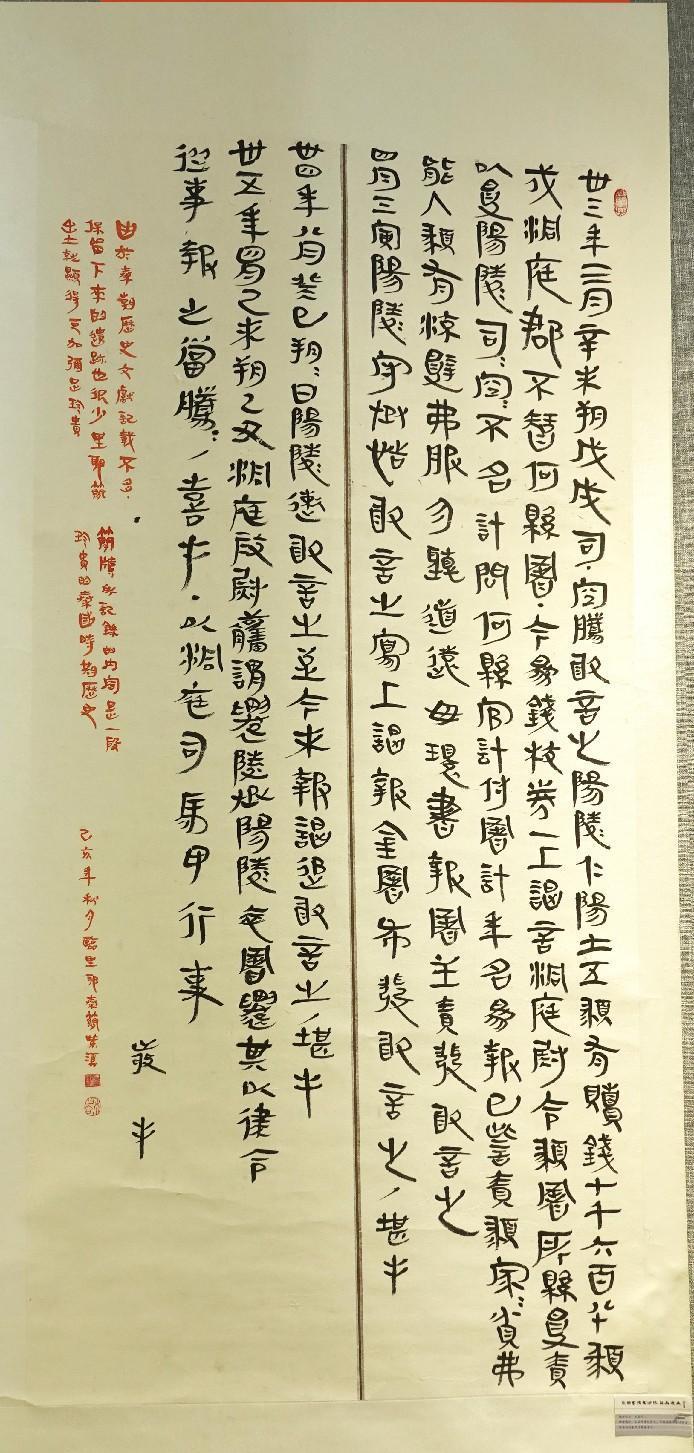 卅三年三月辛未朔戊戌司空騰敢言之陽陵仁陽士五顡有贖錢七千六百八十顡
戍洞庭郡不智何縣署今為錢校券一上謁言洞庭尉令顡署所縣受責
以受陽陵司₌空₌不名計問何縣官計付署計年名為報已訾責顡家₌貧弗
能入顡有流辟弗服勿聽道遠毋環書報署主責發敢言之
四月壬寅陽陵守丞恬敢言之寫上謁報金署布發敢言之堪手
卅四年八月癸巳朔₌日陽陵遬敢言之至今未報謁追敢言之堪手
卅五年四月己未朔乙丑洞庭叚尉觿謂遷陵丞陽陵卒署遷其以律令
從事報之當騰₌嘉手以洞庭司馬印行事
敬手
由於秦對歷史文獻記載不多
保留下來的遺跡也很少里耶簡
出土就顯得更加彌足珍貴
簡牘所記錄的內容是一段
珍貴的秦國時期歷史
己亥年秋月臨里耶秦簡